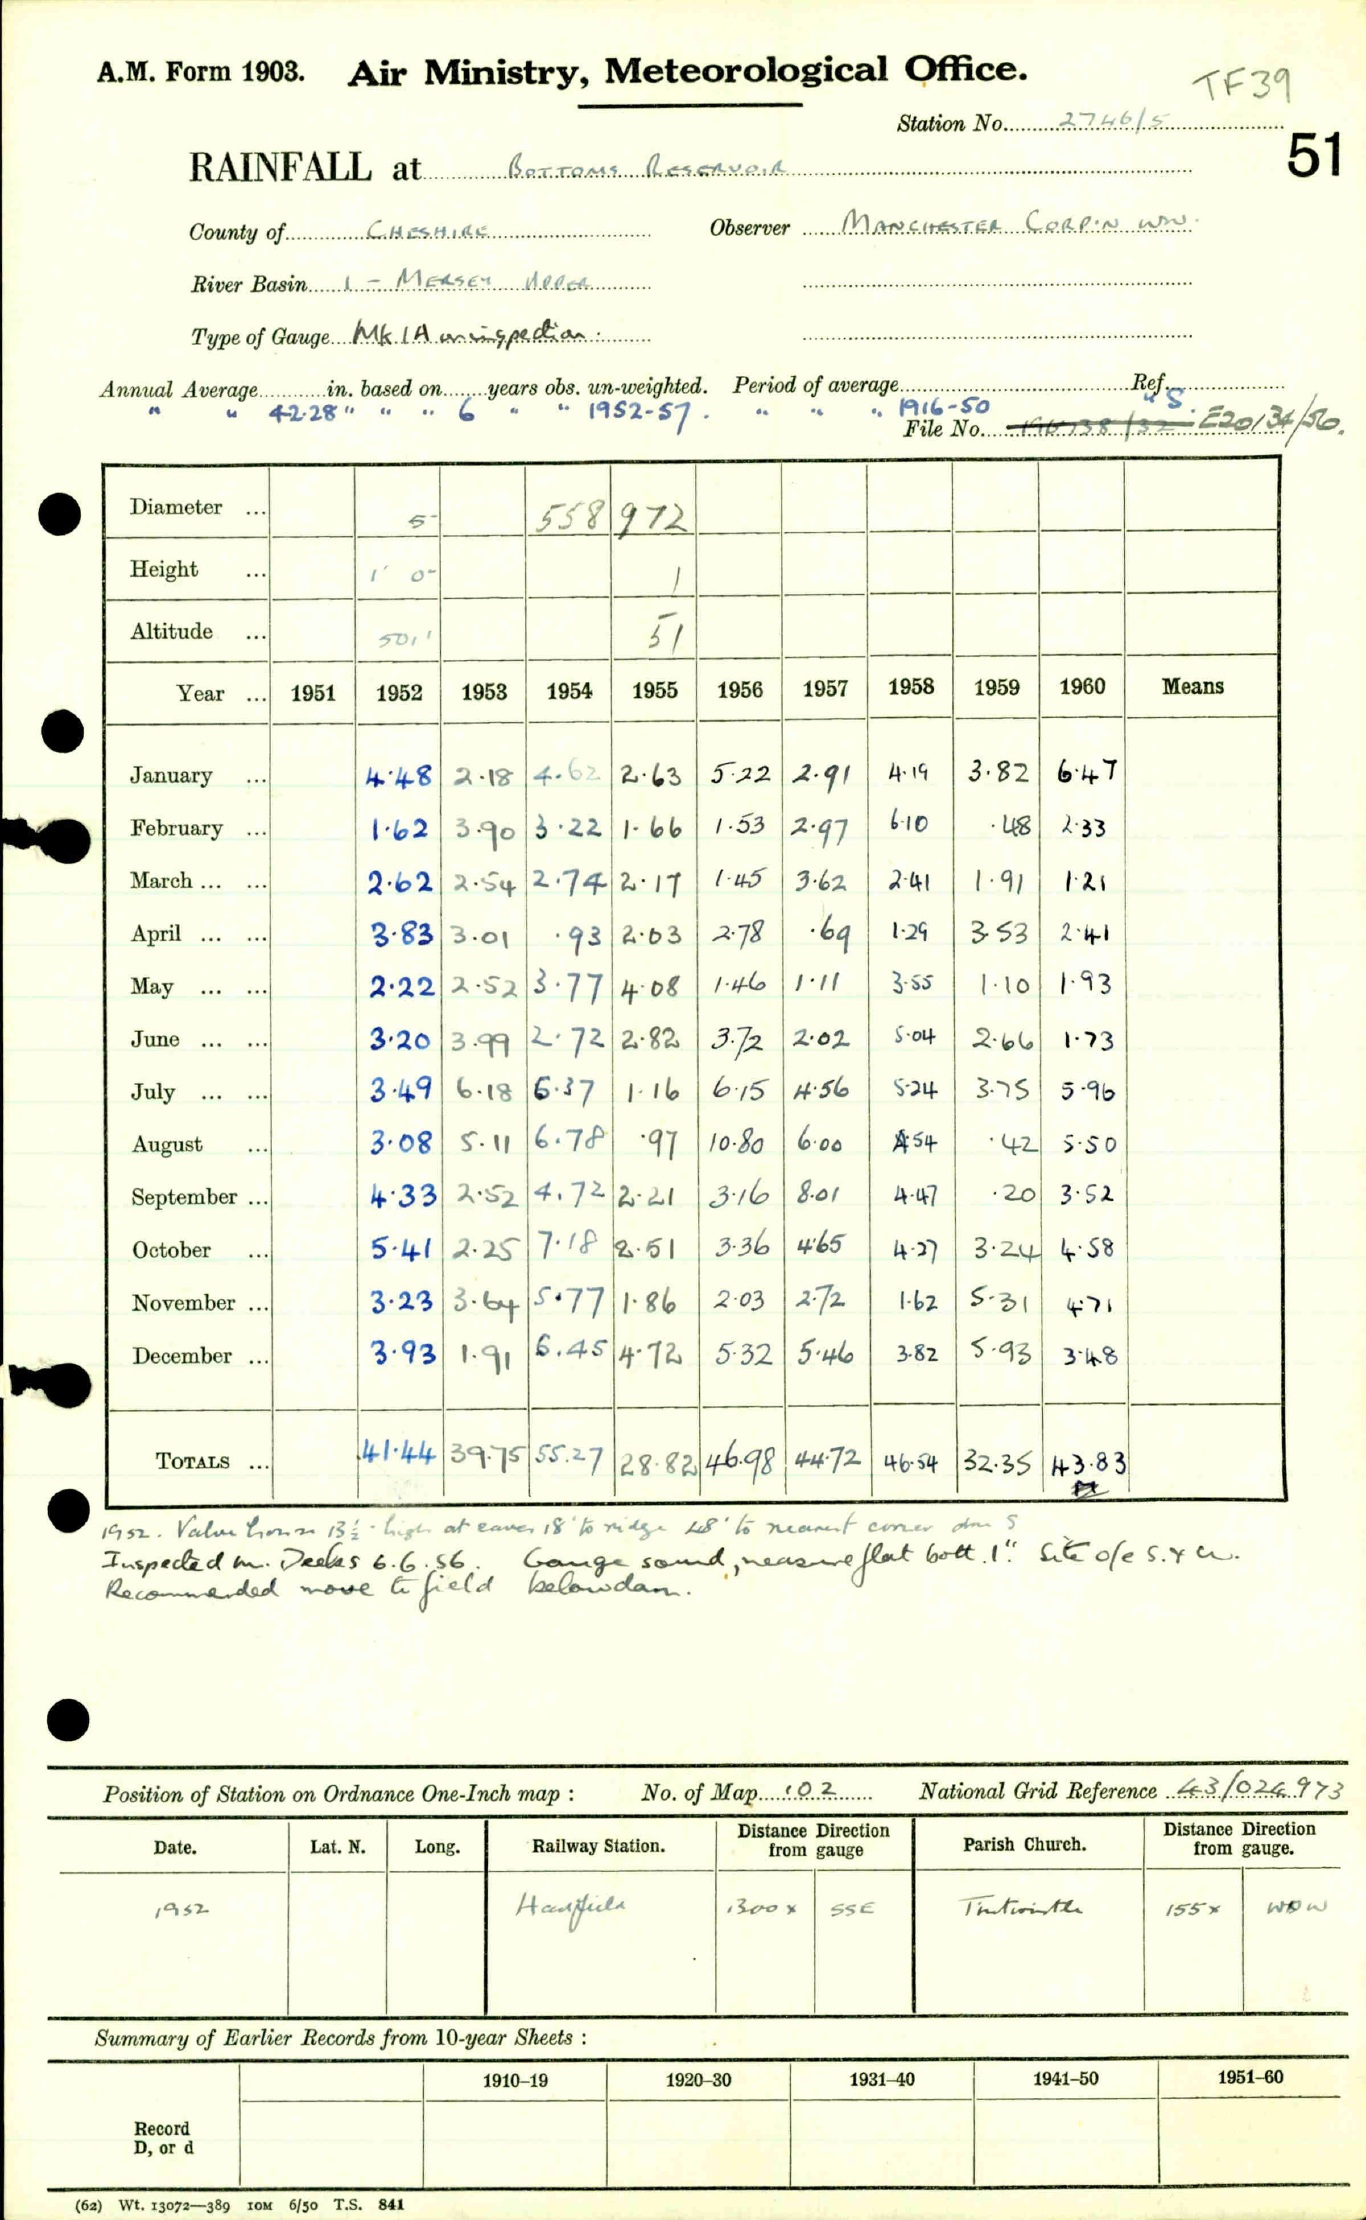 A.M. Form 1903. Air Ministry, Meteorological Office. TF39
Station No. 2746/5
51
RAINFALL at Bottoms Reservoir
County of Cheshire Observer Manchester Corp'n WW.
River Basin 1 - Mersey Upper
Type of Gauge Mk 1A on inspection.
Annual Average in. based on years obs. un-weighted. Period of average Ref.
" " 42.28" " " 6 " " 1952-57. " " " 1916-50 " S.
File No. E20134/56.
Diameter ... 5 558 972
Height ... 1' 0" 1
Altitude ... 501' 51
Year ... 1951 1952 1953 1954 1955 1956 1957 1958 1959 1960 Means
January ... 4.48 2.18 4.62 2.63 5.22 2.91 4.19 3.82 6.47
February ... 1.62 3.90 3.22 1.66 1.53 2.97 6.10 .48 2.33
March ... ... 2.62 2.54 2.74 2.17 1.45 3.62 2.41 1.91 1.21
April ... ... 3.83 3.01 .93 2.03 2.78 .69 1.29 3.53 2.41
May ... ... 2.22 2.52 3.77 4.08 1.46 1.11 3.55 1.10 1.93
June ... ... 3.20 3.99 2.72 2.82 3.72 2.02 5.04 2.66 1.73
July ... ... 3.49 6.18 6.37 1.16 6.15 4.56 5.24 3.75 5.96
August ... 3.08 5.11 6.78 .97 10.80 6.00 4.54 .42 5.50
September ... 4.33 2.52 4.72 2.21 3.16 8.01 4.47 .20 3.52
October ... 5.41 2.25 7.18 2.51 3.36 4.65 4.27 3.24 4.58
November ... 3.23 3.64 5.77 1.86 2.03 2.72 1.62 5.31 4.71
December ... 3.93 1.91 6.45 4.72 5.32 5.46 3.82 5.93 3.48
Totals ... 41.44 39.75 55.27 28.82 46.98 44.72 46.54 32.35 43.83
1952. Valve house 13½' high at eaves 18' to ridge 48' to nearest corner due S
Inspected Mr. Deeks 6.6.56. Gauge sound, measure flat bott. 1". Site o/e S. & W.
Recommended move to field below dam.
Position of Station on Ordnance One-Inch map : No. of Map 102 National Grid Reference 43/024973
Date. Lat. N. Long. Railway Station. Distance Direction from gauge Parish Church. Distance Direction from gauge.
1952 Hadfield 1300x SSE Tintwistle 155x WNW
Summary of Earlier Records from 10-year Sheets :
1910–19 1920–30 1931–40 1941–50 1951–60
Record
D, or d
(62) Wt. 13072—389 10M 6/50 T.S. 841